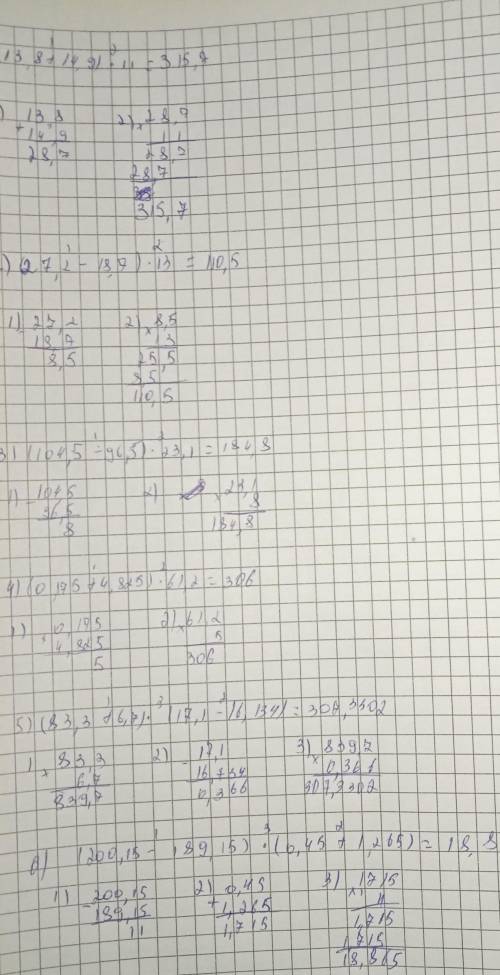 13,8 + 14,9) · 11 = 315,7
13,8
+ 14,9
28,7
2) × 28,7
11
28,7
28,7
315,7
) (27,2 - 18,7) · 13 = 110,5
1) - 27,2
18,7
8,5
2) × 8,5
13
25,5
8,5
110,5
3) (104,5 - 96,5) · 23,1 = 184,8
1) - 104,5
96,5
8
2) × 23,1
8
184,8
4) (0,175 + 4,825) · 61,2 = 306
1) + 0,175
4,825
5
2) × 61,2
5
306
5) (83,3 + 6,7) · (17,1 - 16,734) = 307,3302
1 × 83,3
6,7
839,7
2) - 17,1
16,734
0,366
3) × 8397
0,366
307,3302
6) (200,15 - 189,15) · (0,45 + 1,265) = 18,8
1) - 200,15
189,15
11
2) + 0,45
1,265
1,715
3) × 1,715
11
1,715
1,715
18,865